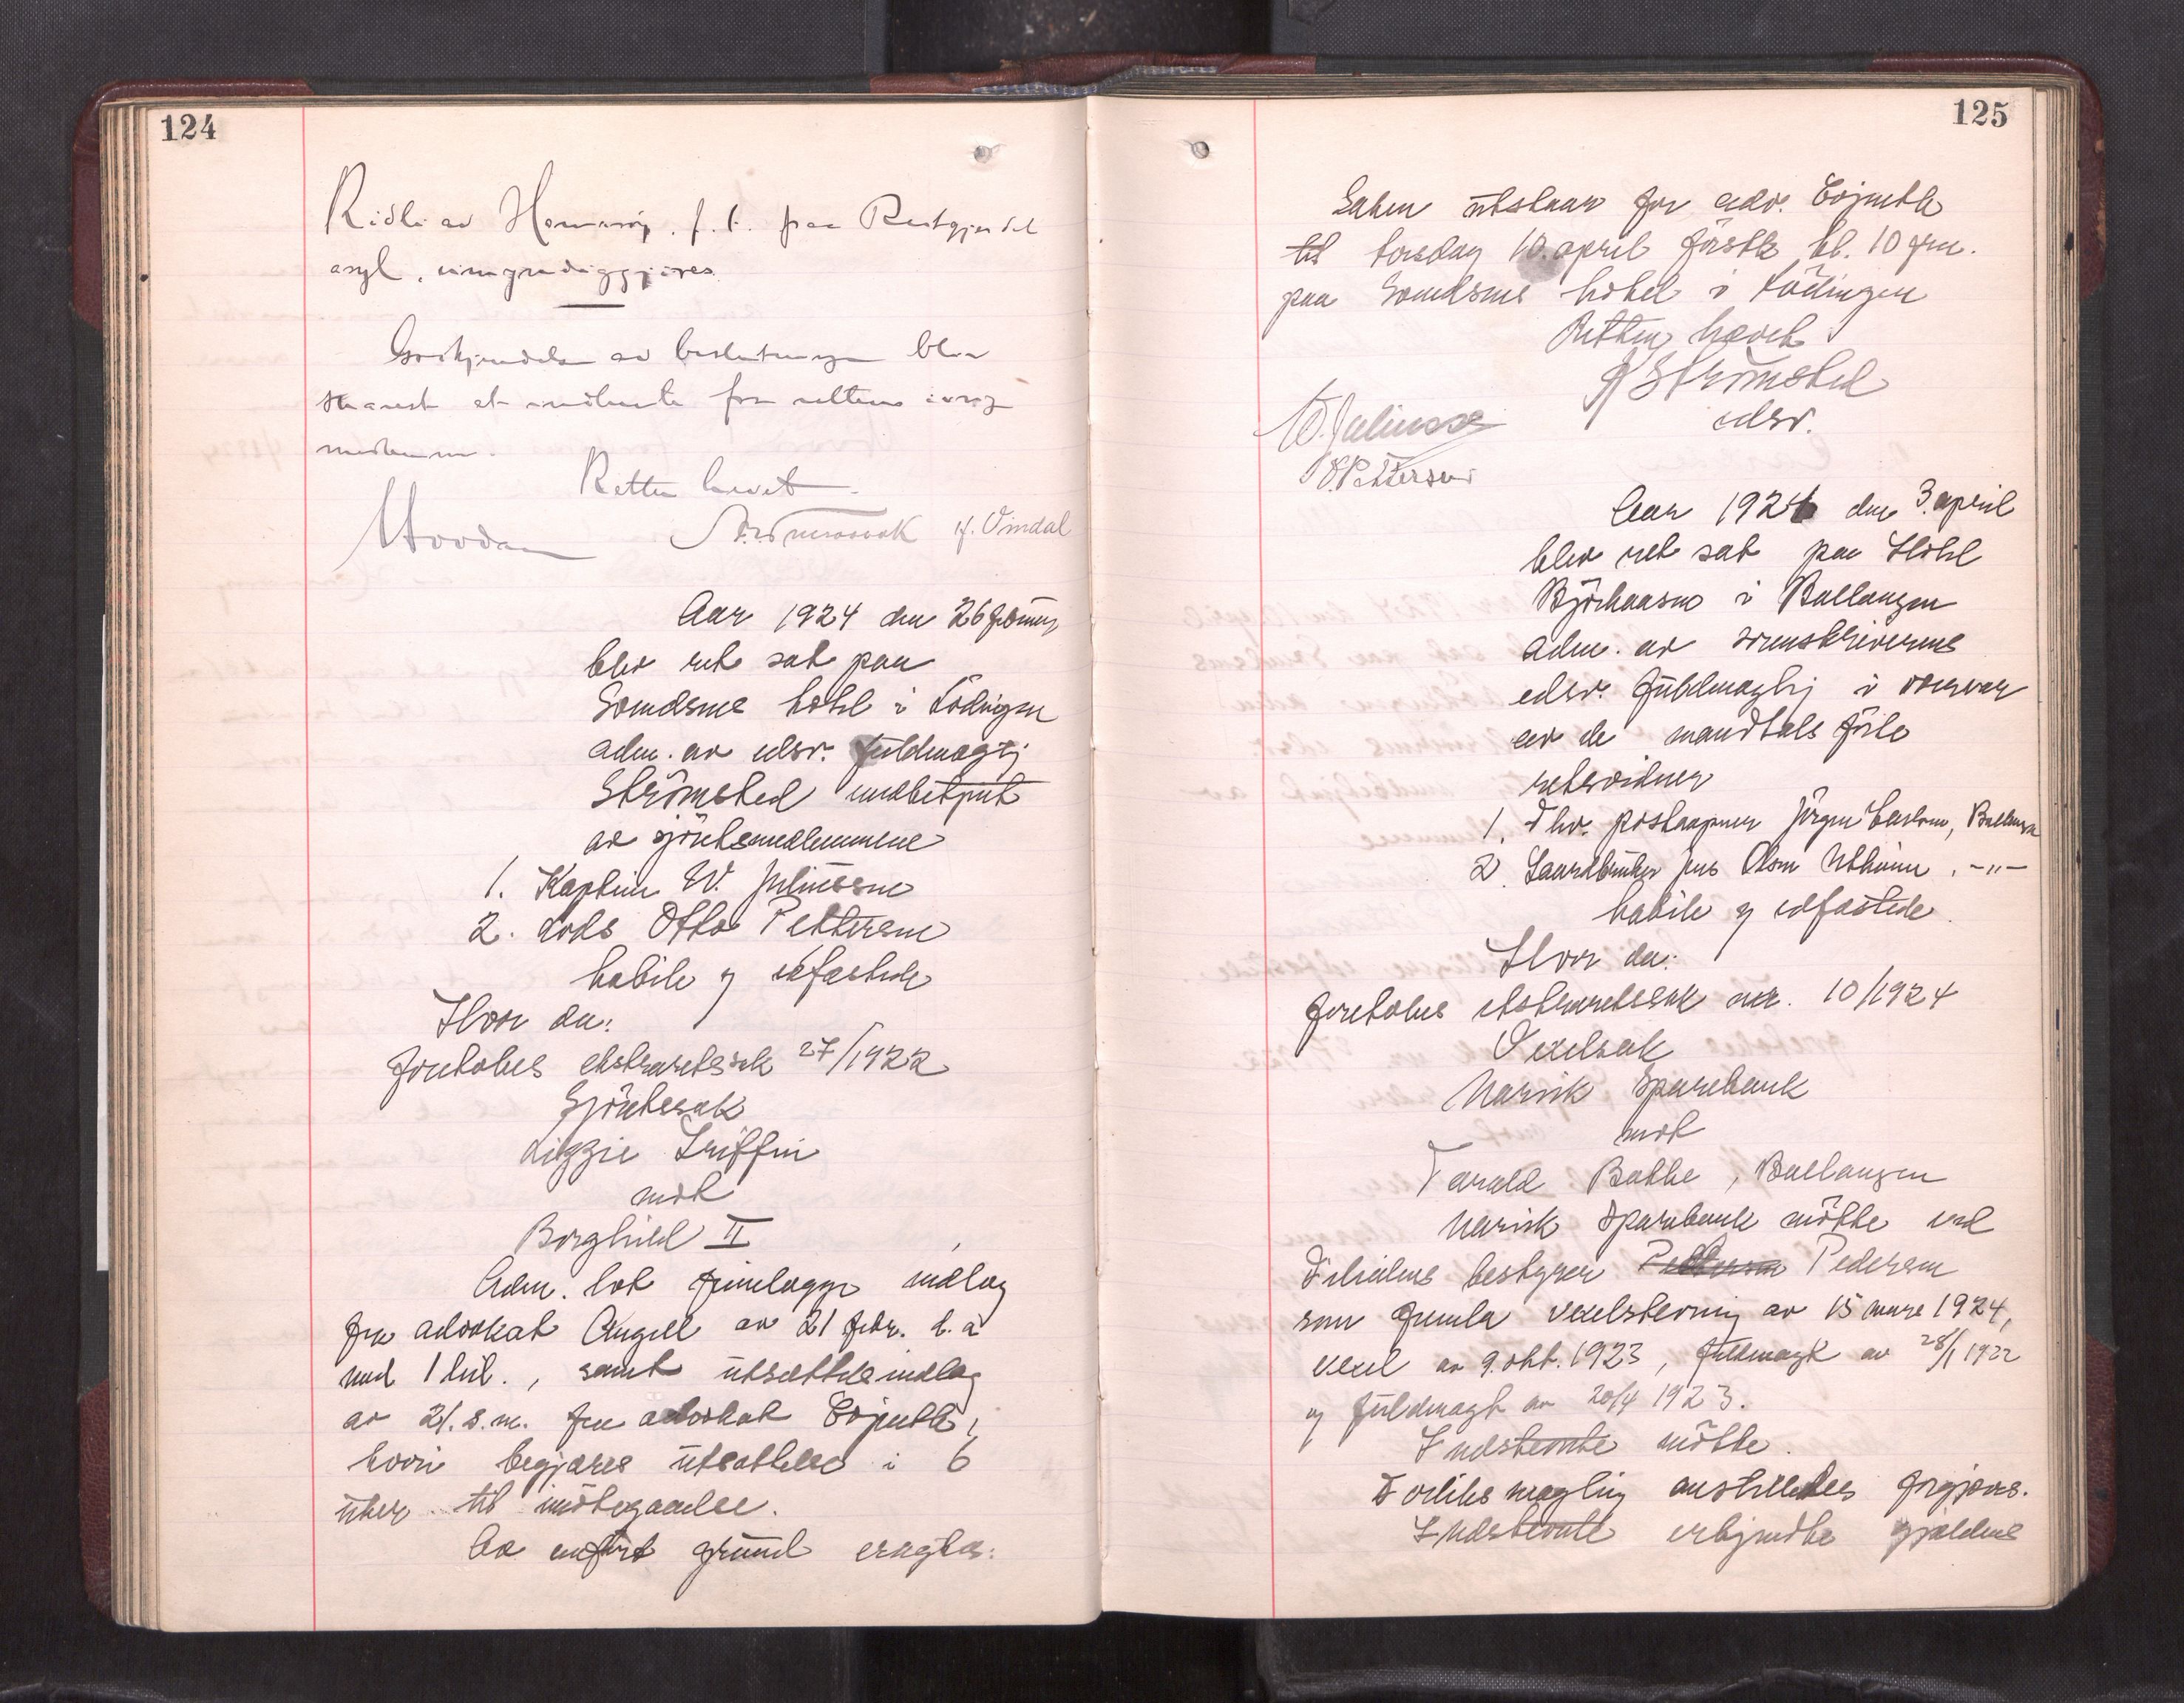 124
Ridli av Hamarøy, f. t. paa Restgjerdet
asyl, umyndiggjøres.
Godkjendelse av beslutningen blir
snarest at indhente fra rettens øvrige
medlemmer.
Retten hævet.
Vindal
Aar 1924 den 26 februar
blev ret sat paa
hotel i Lödingen
adm. av edsv. fuldmægtig
Strömsted medbetjent
av sjöretsmedlemmene
1. Kaptein W. Juliussen
2. Lods Otto Pettersen
habile og edfæstede
Hvor da:
Foretokes ekstraretssak 27/1922
Sjöretssak
Lizzie Griffin
mot
Borghild II
Adm. lot fremlægge indlæg
fra advokat Angell av 21 febr. d. a
med 1 bil., samt utsættelsesindlæg
av 21. s. m. fra advokat Erjenth,
hvori begjæres utsættelse i 6
uker til imötegaaelse.
Av anfört grund eragtes:
125
Saken utstaar for adv.
til torsdag 10. april förstk. kl. 10 fm.
paa hotel i Lödingen
Retten hævet
Strömsted
edsv.
W. Juliussen
O. Pettersen
Aar 1924 den 3. april
blev ret sat paa Hotel
Björkaasen i Ballangen
adm. av sorenskriverens
edsv. fuldmægtig i nærvær
av de mandtalsförte
retsvidner
1. Fhv. postaapner Jörgen Carlsen, Ballangen
2. Gaardbruker Jens Olsen . -"-
habile og edfæstede.
Hvor da:
foretokes ekstraretssak nr. 10/1924
Vexelsak
Narvik Sparebank
mot
Tarald Bakke, Ballangen
Narvik Sparebank mötte ved
Filialens bestyrer Pettersen Pedersen
som fremla vexelstevning av 15 mars 1924,
vexel av 9. okt. 1923, fuldmagt av 28/1 1922
og fuldmagt av 20/4 1923.
Indstevnte mötte.
Forliksmægling anstilledes forgjæves.
Indstevnte erkjendte gjældens